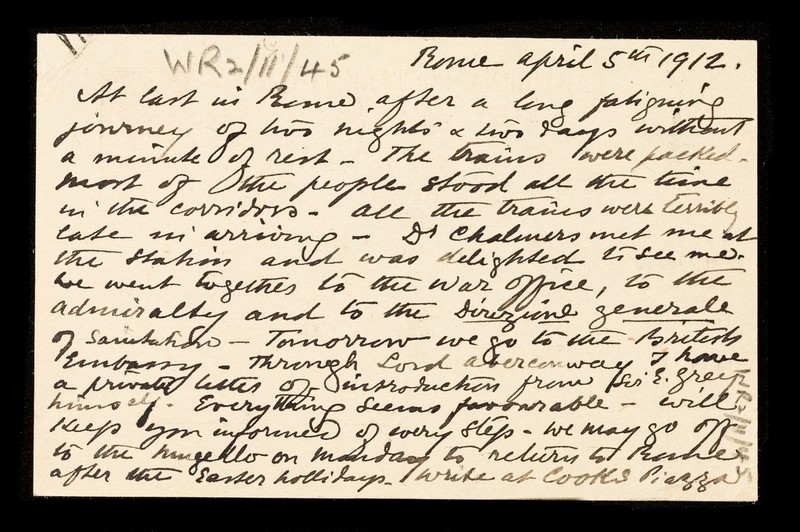 WR2/11/45
Rome april 5th 1912.
At last in Rome, after a long fatiguing
journey of two nights & two days without
a minute of rest - The trains were packed -
most of the people stood all the time
in the corridors - all the trains were terribly
late in arriving - Dr Chalmers met me at
the station and was delighted to see me.
We went together to the War office, to the
admiralty and to the Direzione generale
of Sanitation - Tomorrow we go to the British
Embassy - Through Lord aberconway I have
a private letter of introduction from Sir E. Grey
himself. Everything seems favourable - will
keep you informed of every step - we may go off
to the Mugello on monday to return to Rome
after the Easter hollidays - write at Cook's Piazza